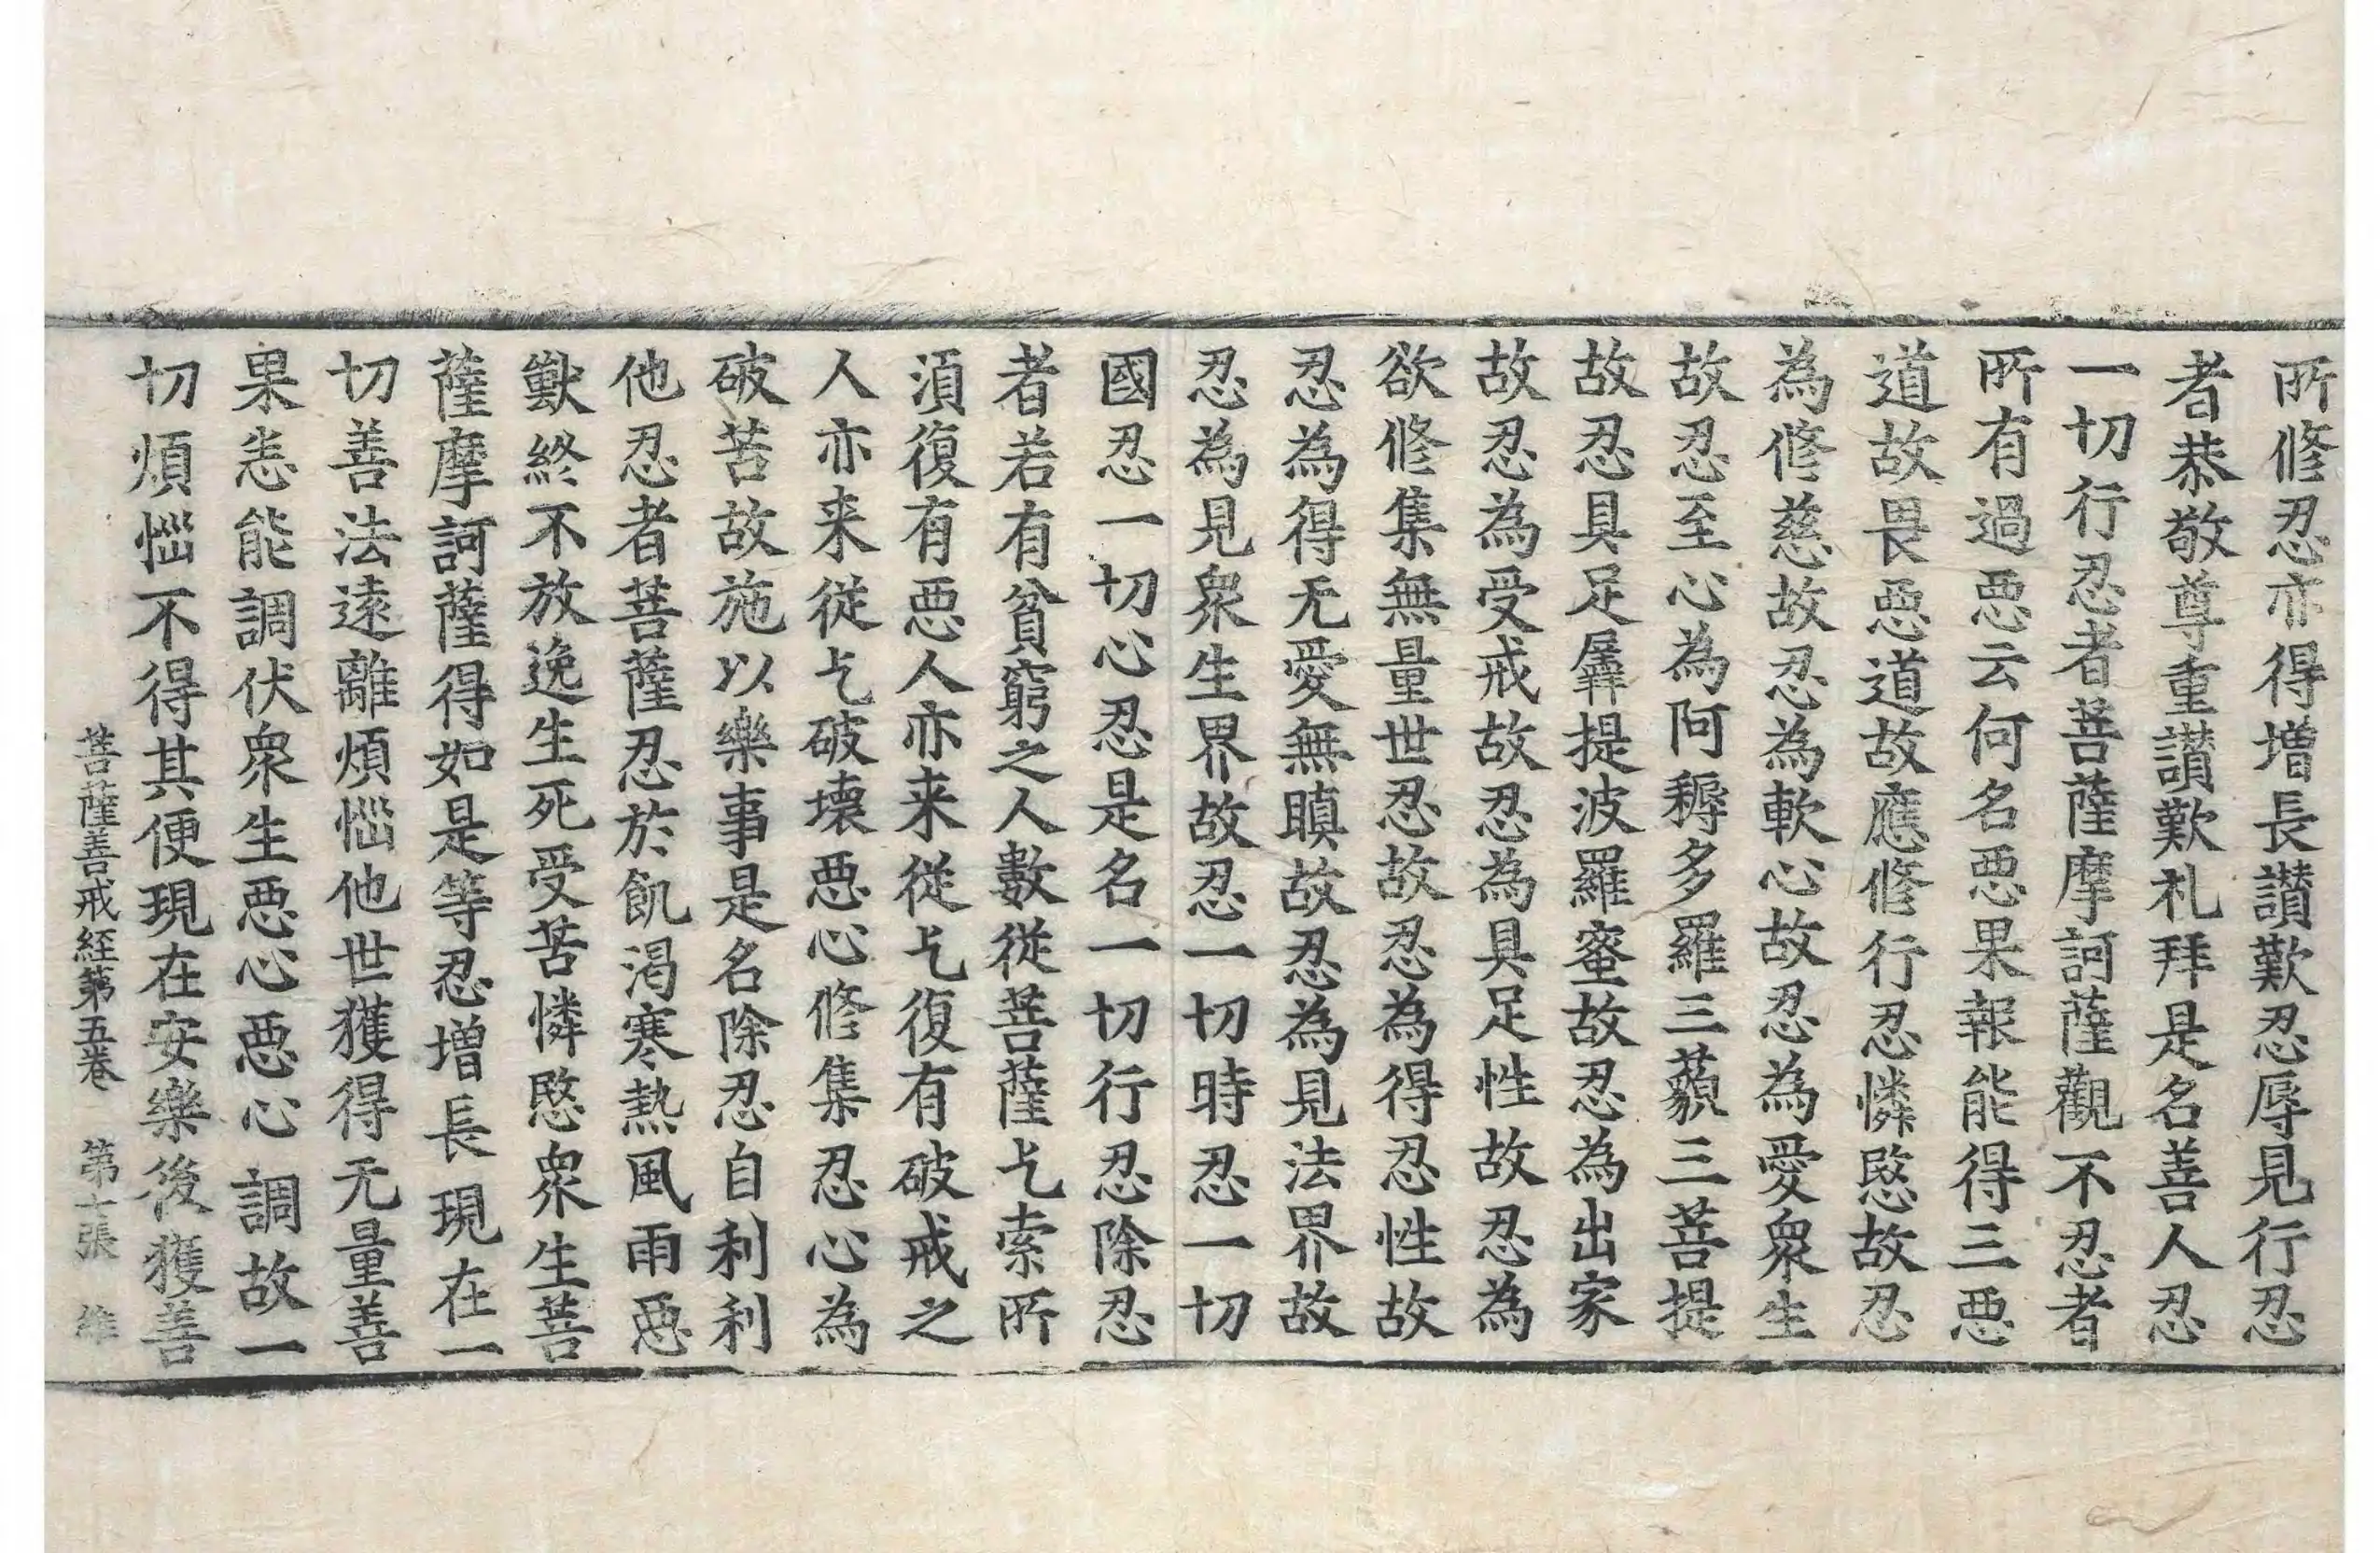 所修忍亦得増長讃歎忍辱見行忍
者恭敬尊重讃歎礼拜是名善人忍
一切行忍者菩薩摩訶薩觀不忍者
所有過惡云何名惡果報能得三惡
道故畏惡道故應修行忍憐愍故忍
為修慈故忍為軟心故忍為愛衆生
故忍至心為阿耨多羅三藐三菩提
故忍具足羼提波羅蜜故忍為出家
故忍為受戒故忍為具足性故忍為
欲修集無量世忍故忍為得忍性故
忍為得无愛無瞋故忍為見法界故
忍為見衆生界故忍一切時忍一切
國忍一切心忍是名一切行忍除忍
者若有貧窮之人數從菩薩乞索所
湏復有惡人亦来從乞復有破戒之
人亦来從乞破壞惡心修集忍心為
破苦故施以樂事是名除忍自利利
他忍者菩薩忍於飢渴寒熱風雨惡
獸終不放逸生死受苦憐愍衆生菩
薩摩訶薩得如是等忍增長現在一
切善法遠離煩惱他世獲得无量善
果恙能調伏衆生惡心惡心調故一
切煩惱不得其便現在安樂後獲善
菩薩善戒経第五卷 第十張 維